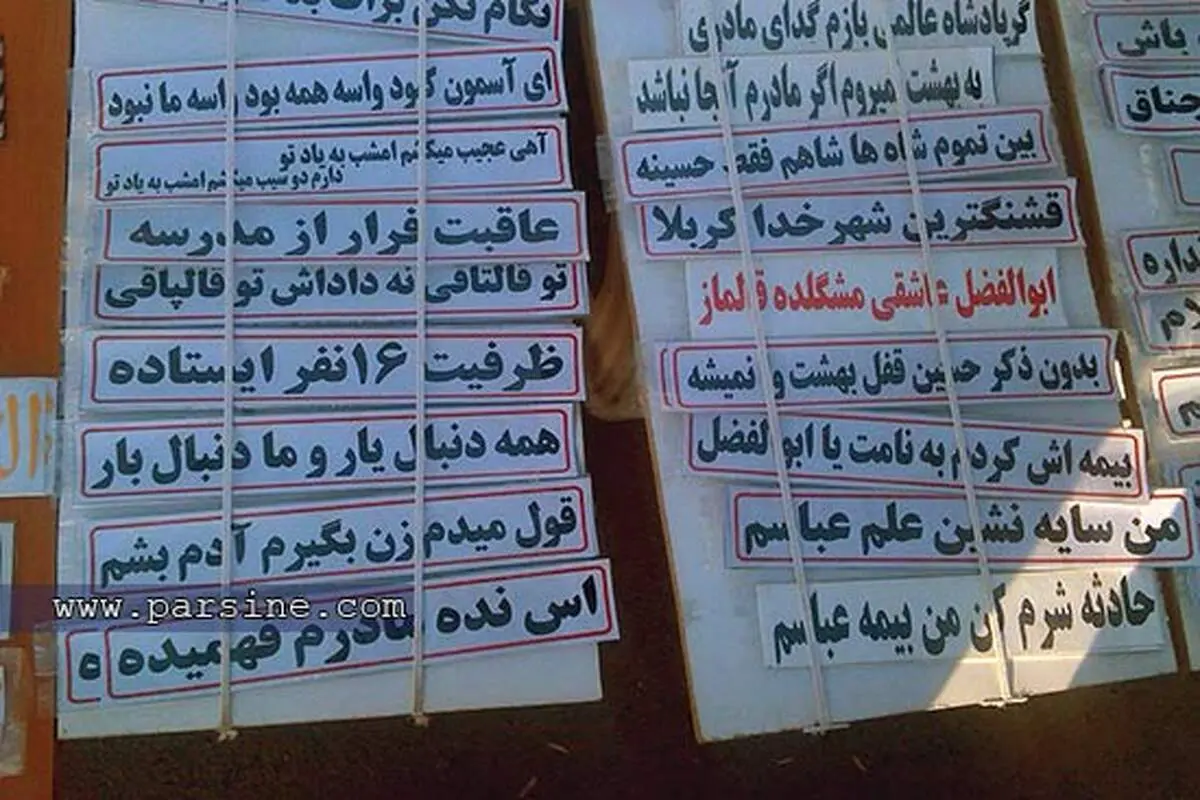 نگام نکن برات بد
ای آسمون کبود واسه همه بود واسه ما نبود
آهی عجیب میکشم امشب به یاد تو
دارم دو سیب میکشم امشب به یاد تو
عاقبت فرار از مدرسه
تو فالتاقی نه داداش تو قالپاقی
ظرفیت ۱۶نفر ایستاده
همه دنبال یار و ما دنبال بار
قول میدم زن بگیرم آدم بشم
اس نده مادرم فهمیده
ه
www.parsine.com
گرپادشاه عالمی بازم گدای مادری
به بهشت نمیروم اگر مادرم آنجا نباشد
بین تموم شاه ها شاهم فقط حسینه
قشنگترین شهرخدا کربلا
ابوالفضل عاشقی مشگلده قالماز
بدون ذکر حسین قفل بهشت وا نمیشه
بیمه اش کردم به نامت یا ابوالفضل
من سایه نشین علم عباسم
حادثه شرم کن من بیمه عباسم
باش
جناق
نداره